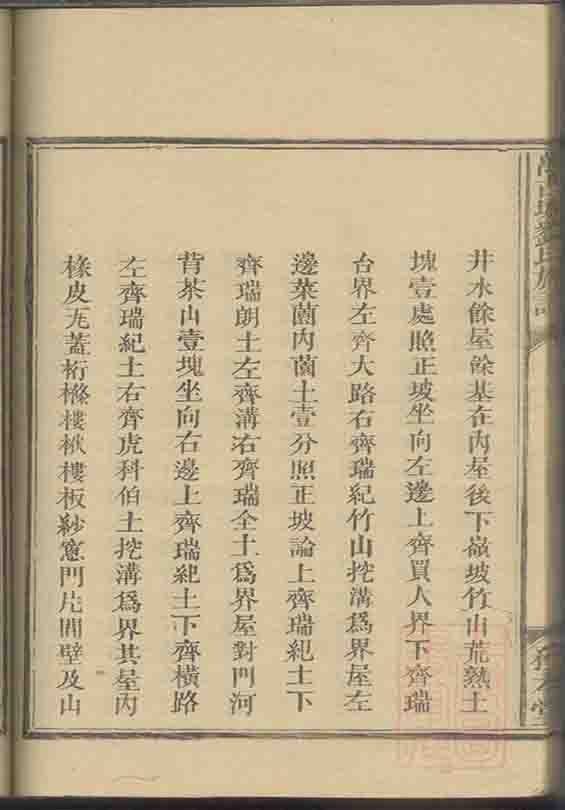 井水餘屋餘基在內屋後下嶺坡竹山荒熟土
塊壹處照正坡坐向左邊上齊買人界下齊瑞
台界左齊大路右齊瑞紀竹山挖溝爲界屋左
邊菜薗內薗土壹分照正坡論上齊瑞紀土下
齊瑞朗土左齊溝右齊瑞全土爲界屋對門河
背茶山壹塊坐向右邊上齊瑞紀土下齊橫路
左齊瑞紀土右齊虎科伯土挖溝爲界其屋內
椽皮瓦蓋桁樤樓栿樓板紗窻門片間壁及山